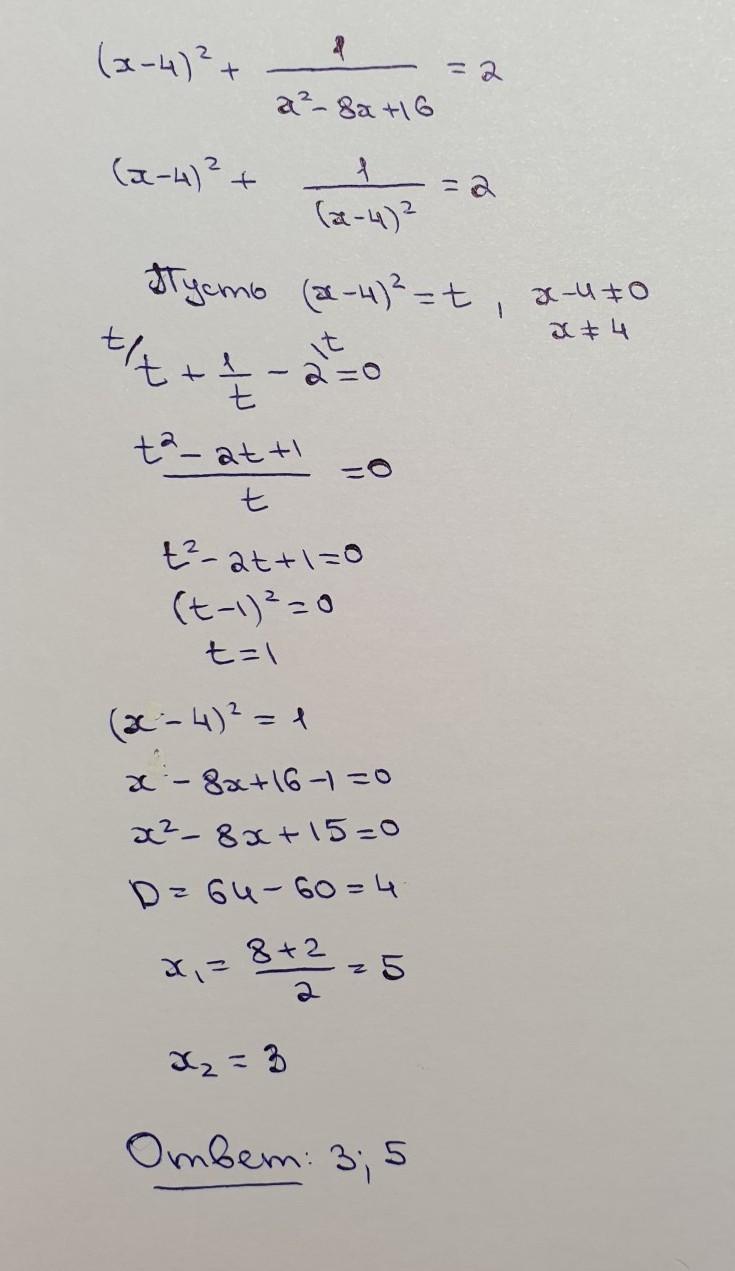 (x-4)² + 1/(x²-8x+16) = 2
(x-4)² + 1/(x-4)² = 2
Пусть (x-4)² = t, x-4≠0
x≠4
t/ t + 1/t - 2 \t = 0
(t²-2t+1)/t = 0
t²-2t+1=0
(t-1)²=0
t=1
(x-4)² = 1
x - 8x+16-1=0
x²-8x+15=0
D = 64-60=4
x₁ = (8+2)/2 = 5
x₂ = 3
Ответ: 3; 5